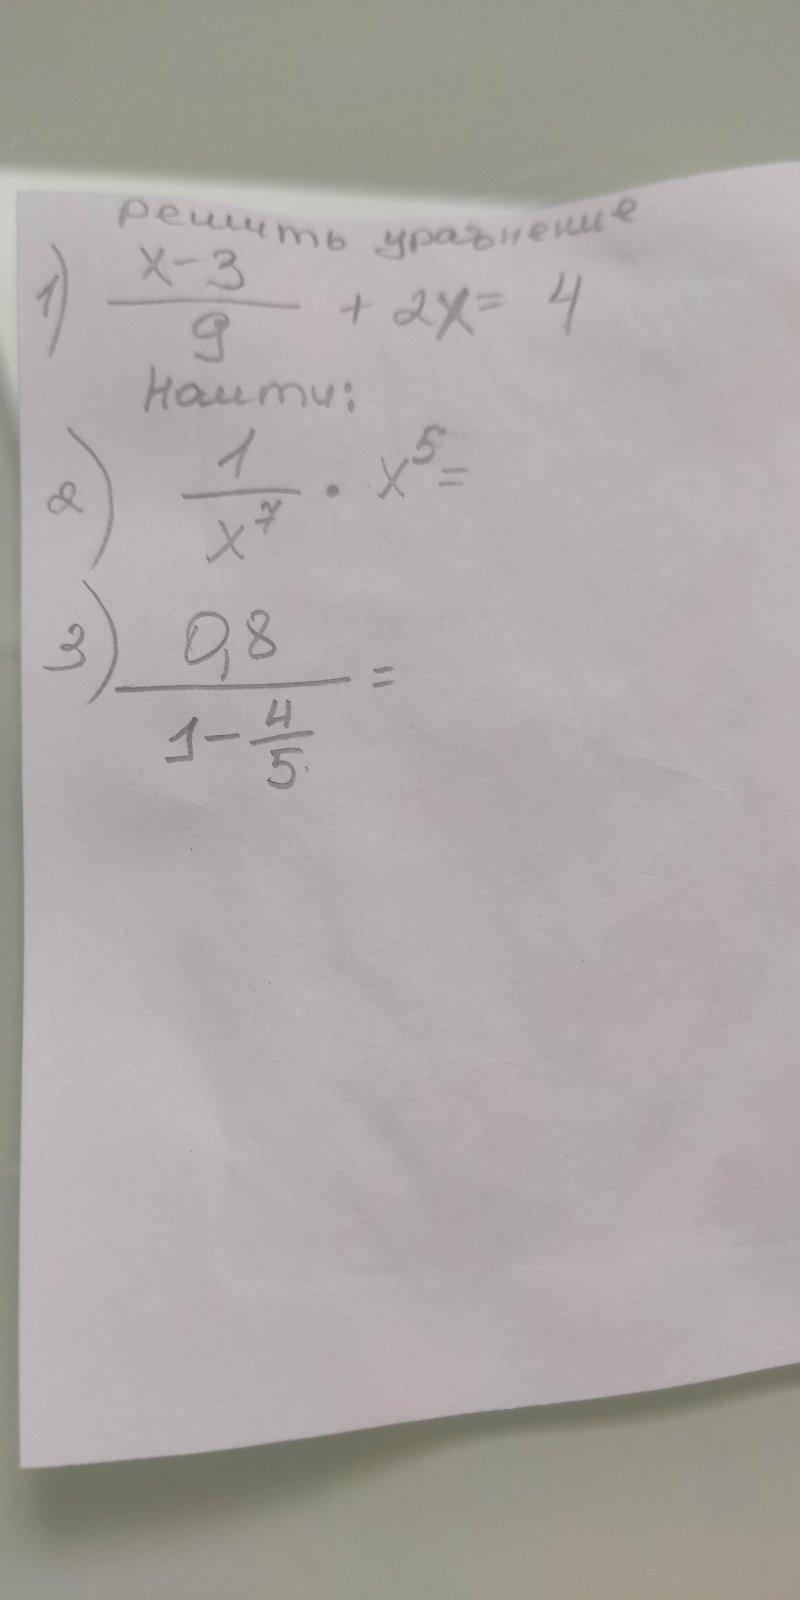 решить уравнение
1) x-3/9 + 2x= 4
Найти:
2) 1/x⁷ · x⁵=
3) 0,8/(1-4/5) =